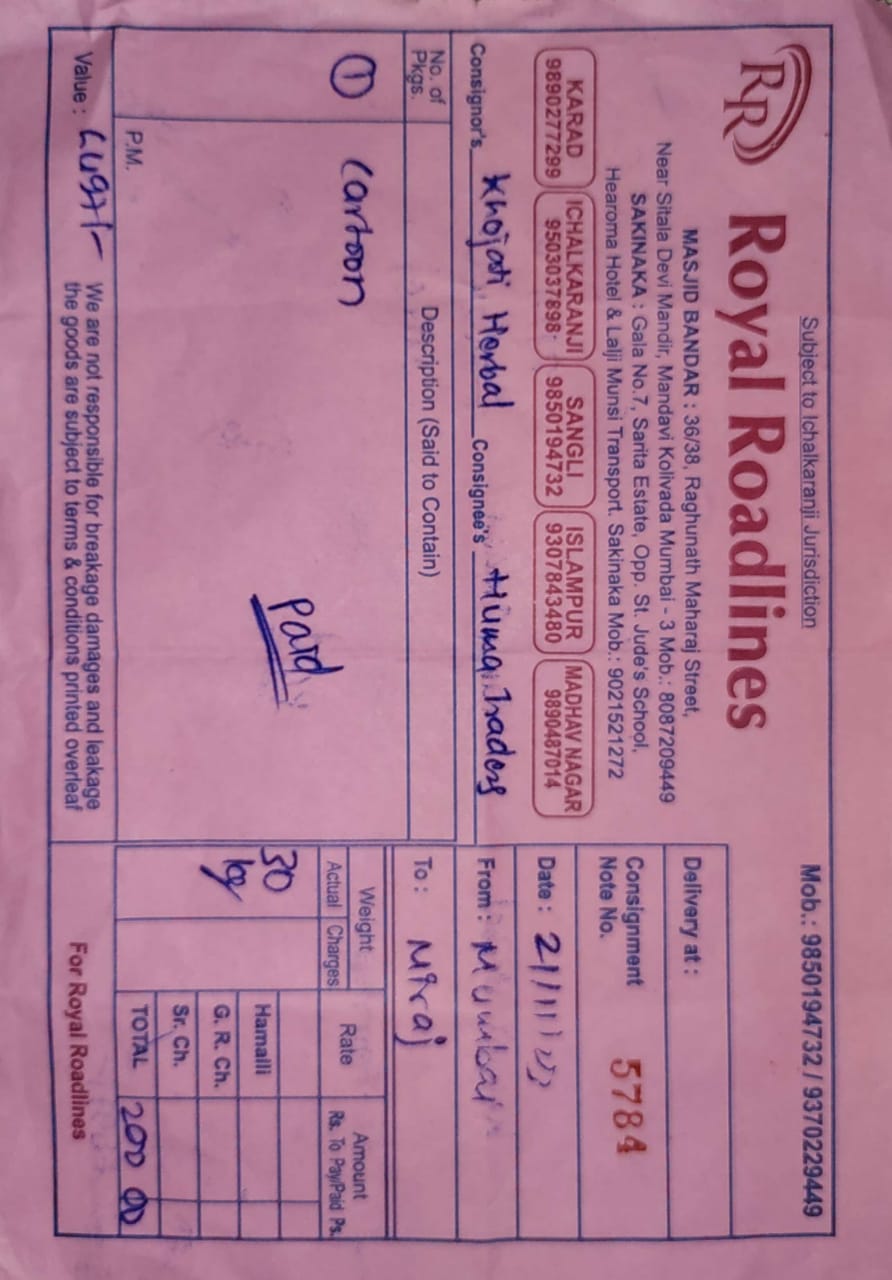 Subject to Ichalkaranji Jurisdiction
Mob.: 9850194732 / 9370229449
RR
Royal Roadlines
MASJID BANDAR : 36/38, Raghunath Maharaj Street,
Near Sitala Devi Mandir, Mandavi Kolivada Mumbai - 3 Mob.: 8087209449
SAKINAKA : Gala No.7, Sarita Estate, Opp. St. Jude's School,
Hearoma Hotel & Lalji Munsi Transport. Sakinaka Mob.: 9021521272
KARAD
9890277299
ICHALKARANJI
9503037898
SANGLI
9850194732
ISLAMPUR
9307843480
MADHAV NAGAR
9890487014
Delivery at :
Consignment
Note No. 5784
Date : 21/11/
Consignor's Khojati Herbal Consignee's Huma Traders
From : Mumbai
To : Miraj
No. of
Pkgs.
Description (Said to Contain)
Weight
Actual Charges
Rate
Amount
Rs. To Pay/Paid Ps.
1 Cartoon
Paid
30
kg
Hamalli
G. R. Ch.
Sr. Ch.
TOTAL 200 00
P.M.
Value : We are not responsible for breakage damages and leakage
the goods are subject to terms & conditions printed overleaf
For Royal Roadlines